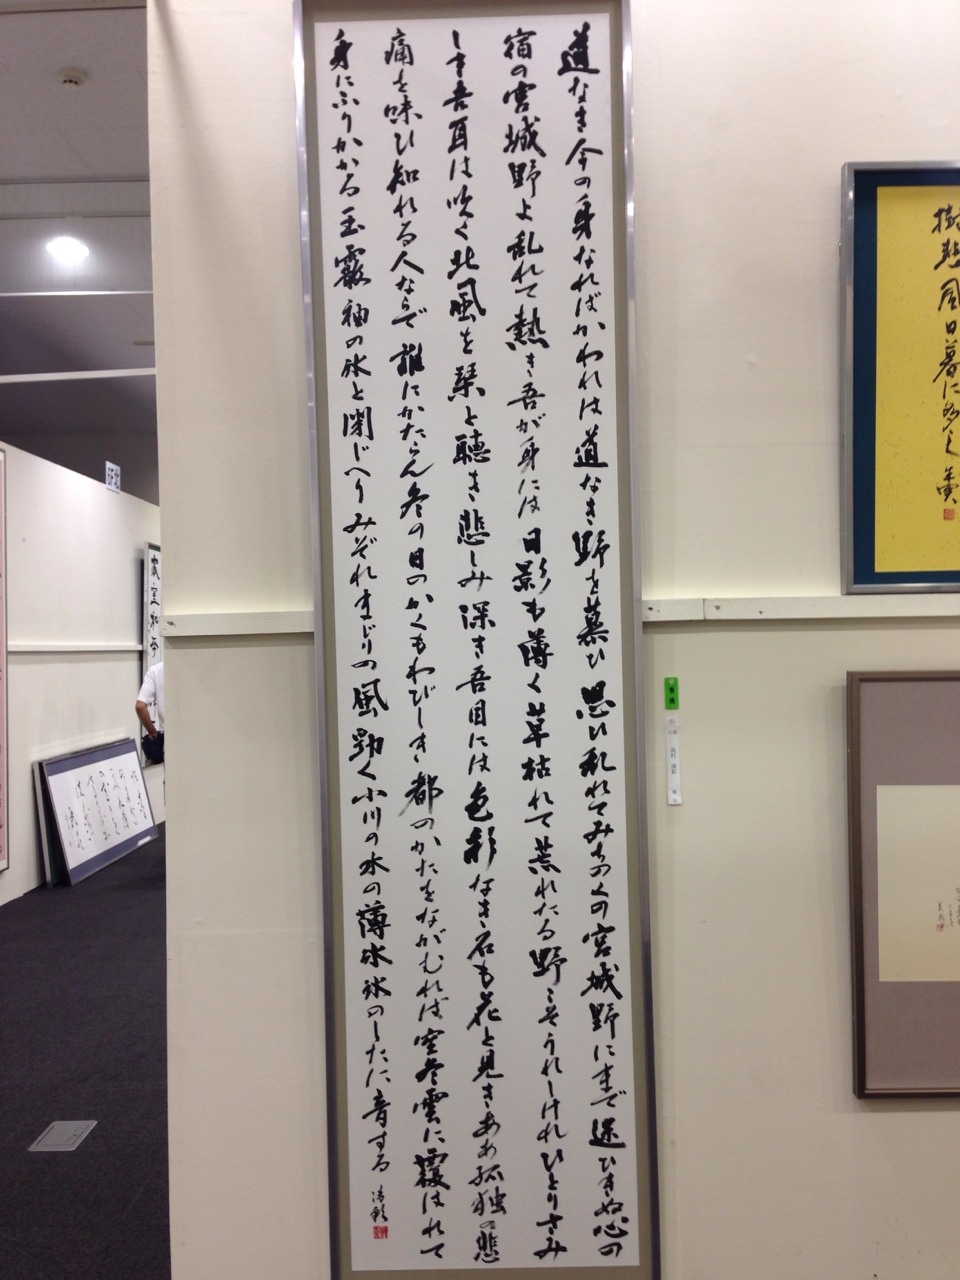 道なき今の身なればかわれは道なき野を慕ひ思ひ乱れてみちのくの宮城野にまで迷ひきぬ心の
宿の宮城野よ乱れて熱き吾が身には日影も薄く草枯れて荒れたる野こそうれしけれひとりさみ
しき吾耳は吹く北風を琴と聴き悲しみ深き吾目には色彩なき石も花と見きああ孤独の悲
痛を味ひ知れる人ならで誰にかたらん冬の日のかくもわびしき都のかたをながむれば空冬雲に覆はれて
身にふりかかる玉霰袖の氷と閉じへりみぞれまじりの風勁く小川の水の薄氷氷のしたに音する
樹悲風日暮に多く